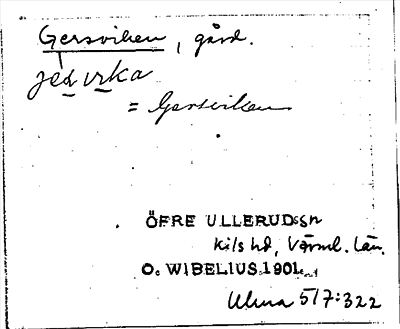 Gersviken, gård.
jeś vrka
= Gersviken
ÖFRE ULLERUDS sn
Kils hd, Värml. län.
O. WIBELIUS 1901
Ulma 517:322